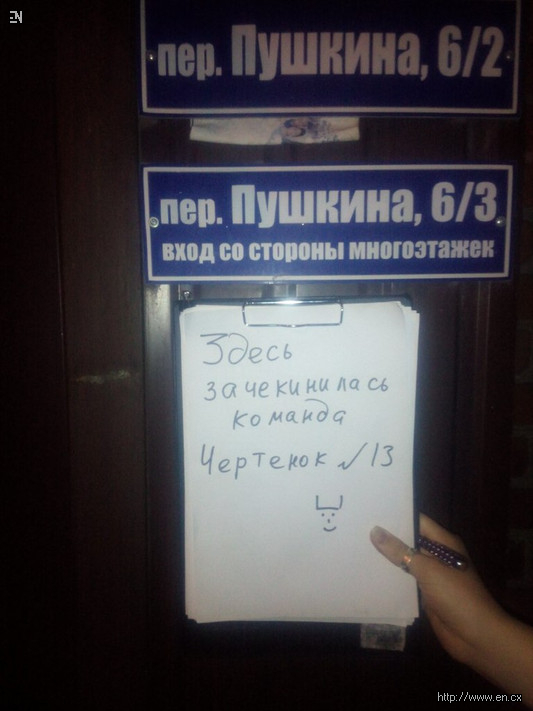 EN
пер. Пушкина, 6/2
пер. Пушкина, 6/3
вход со стороны многоэтажек
Здесь
зачекинилась
команда
Чертенок №13
http://www.en.cx